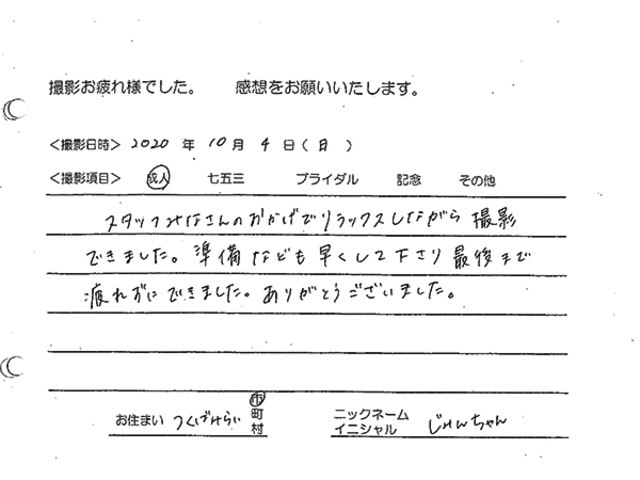 撮影お疲れ様でした。 感想をお願いいたします。
<撮影日時> 2020 年 10 月 4 日(日)
<撮影項目> 成人 七五三 ブライダル 記念 その他
スタッフみなさんのおかげでリラックスしながら撮影
できました。準備なども早くして下さり最後まで
疲れずにできました。ありがとうございました。
お住まい つくばみらい 市町村
ニックネーム イニシャル じゅんちゃん